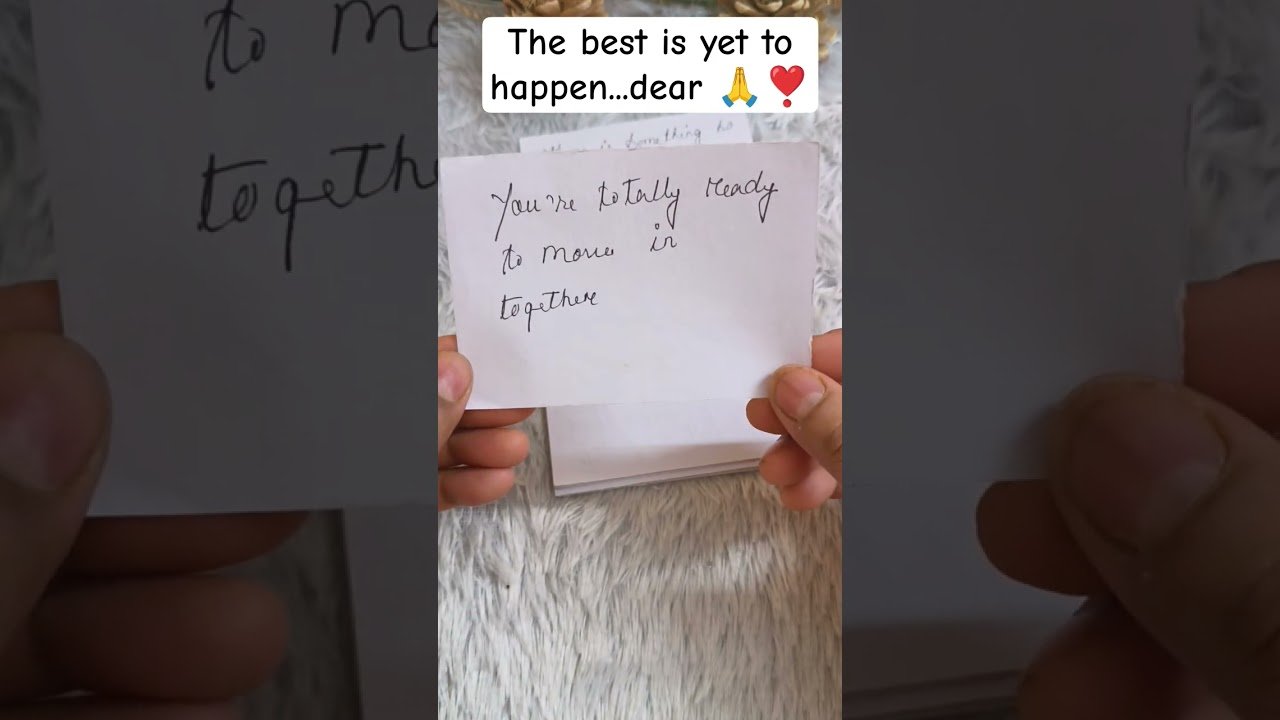 The best is yet to
happen...dear 🙏❣️
is something to
You're totally ready
to move in
together
to mo
togeth